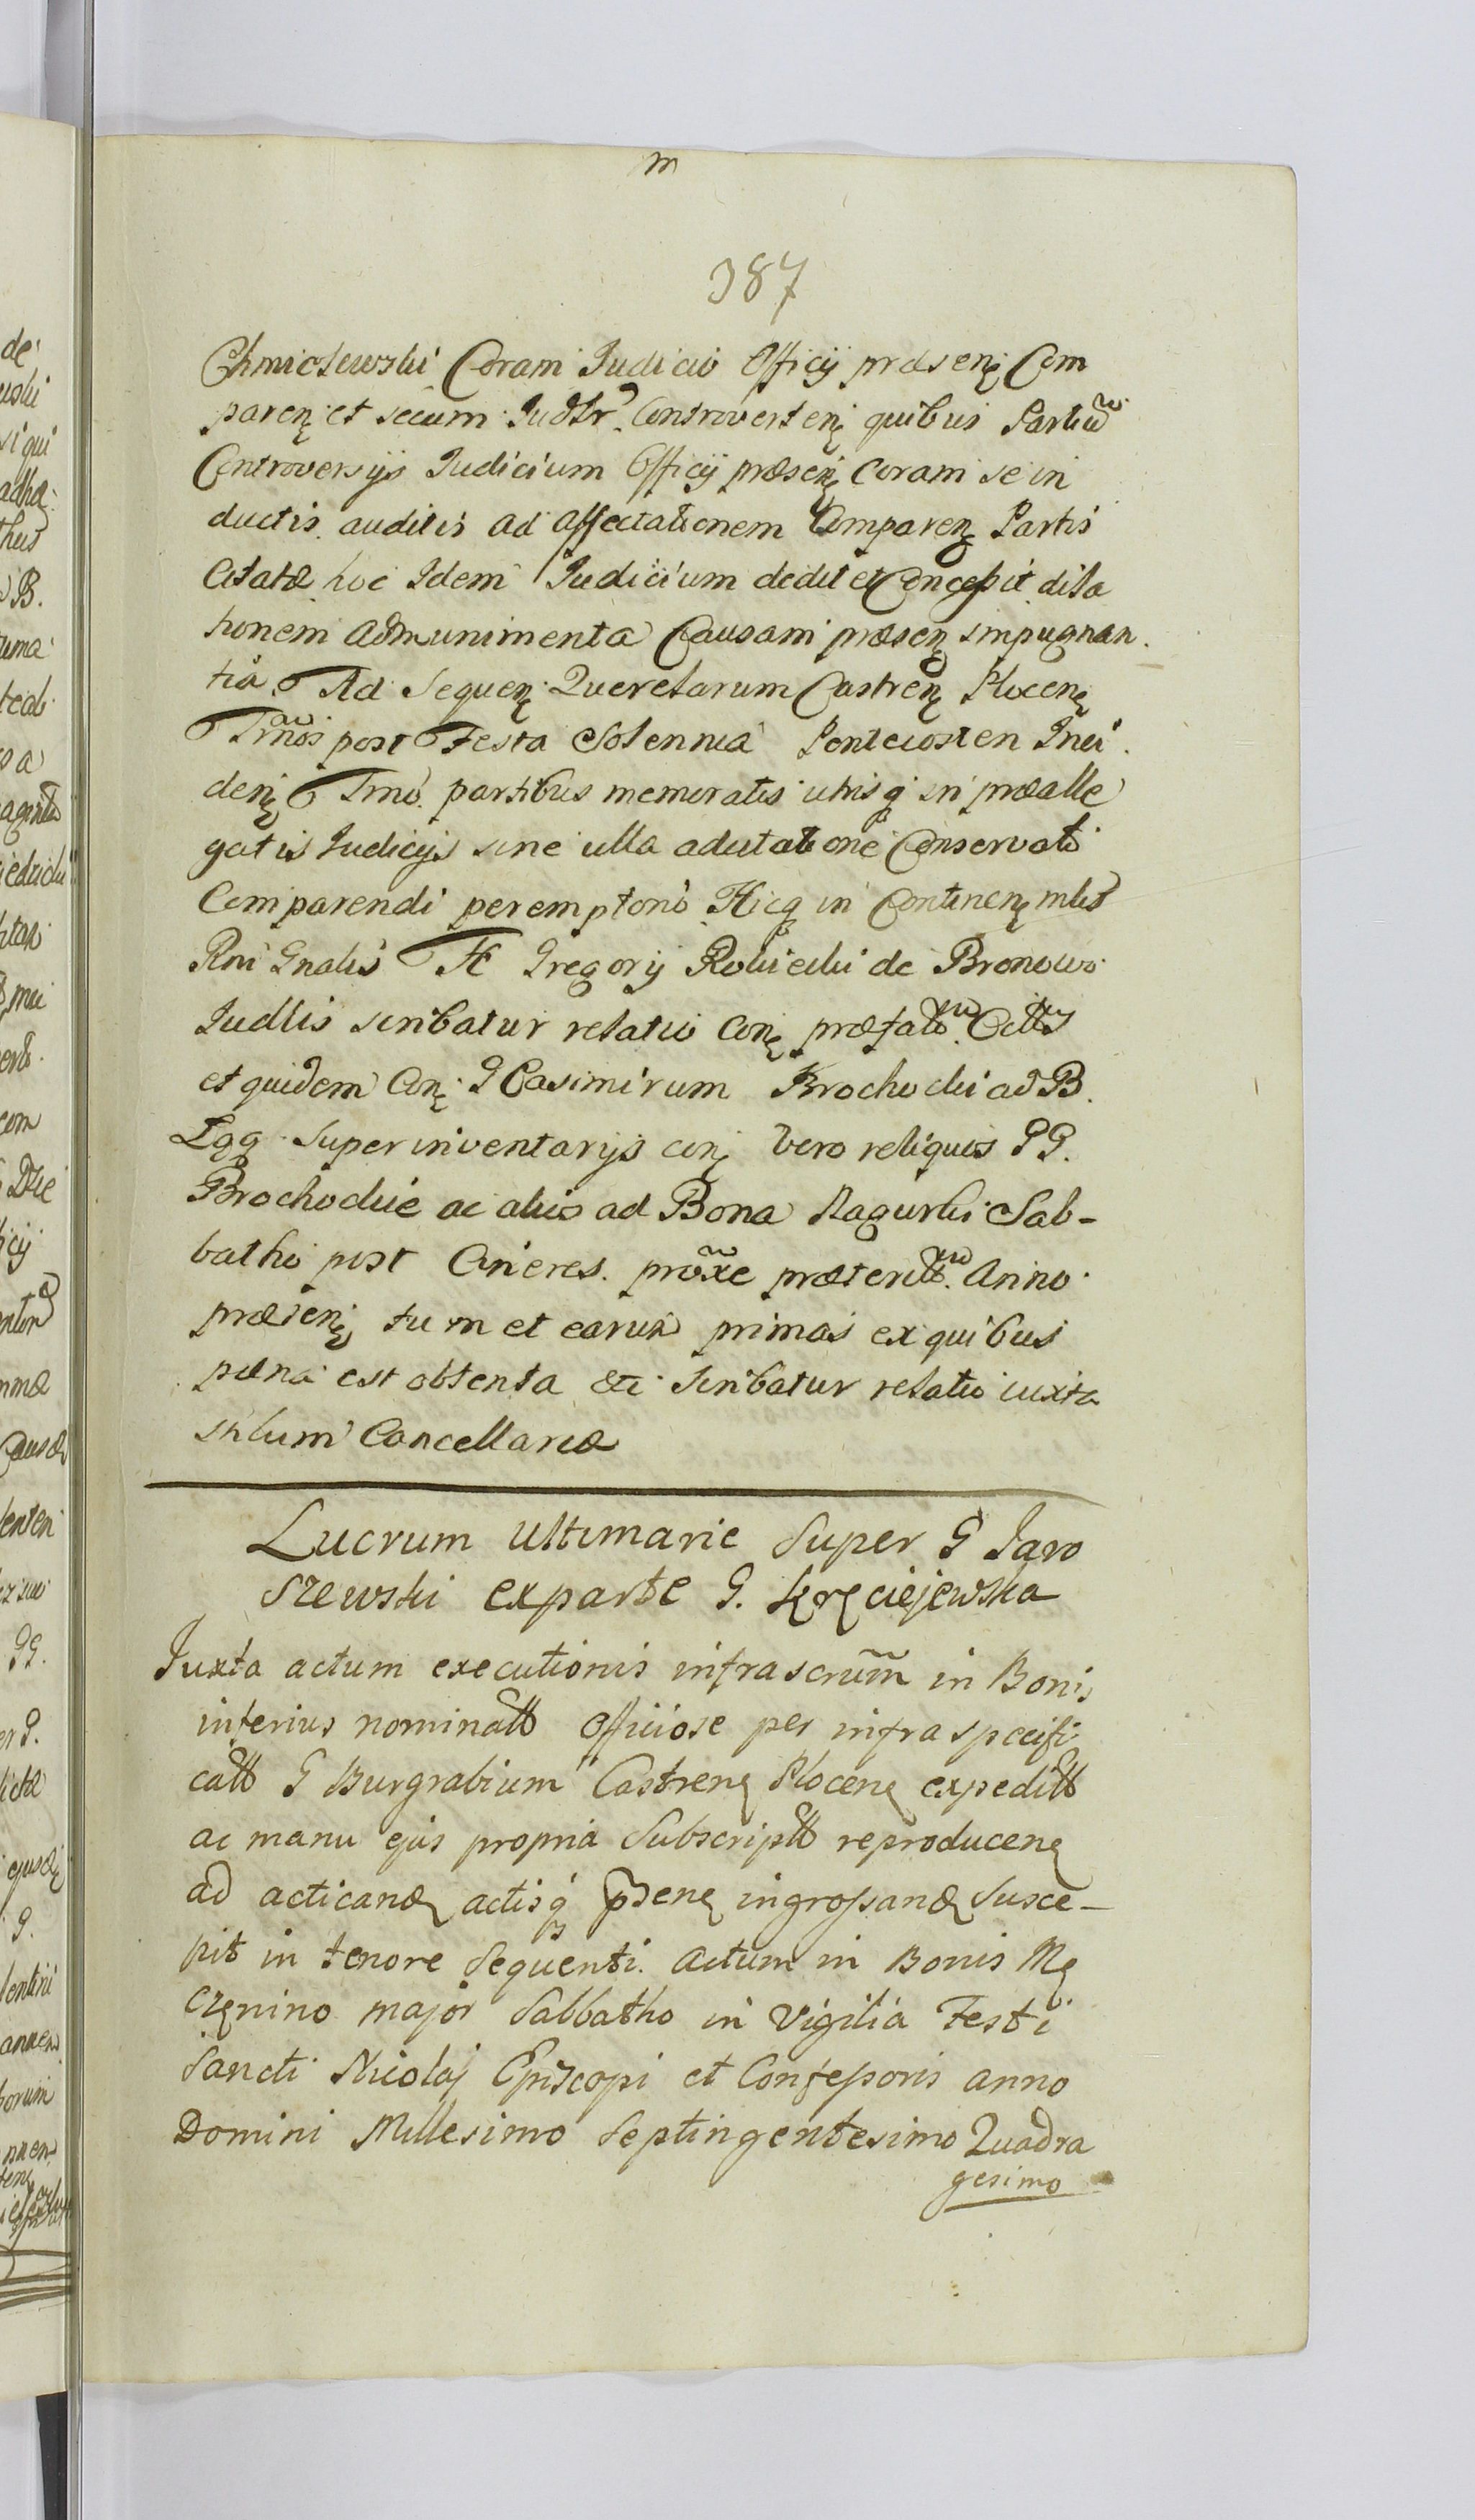 m
387
Chmielewski Coram Judicio Officij præsenę Com
parenę et secum Judlr Controvertenę quibus Partiū
Controversijs Judicium Officij præsenę coram se in
ductis auditis ad affectationem Comparenę Partis
Citatæ hoc Idem Judicium dedit et Concessit dila
tionem ad munimenta Causam præsenę impugnan
tia Ad Sequenę Querelarum Castrenę Plocenę
Trnõs post Festa Solennia Pentecosten Inci
denę Trno partibus memoratis utrisq in præalle
gatis Judicijs sine ulla adcitatione Conservato
Comparendi peremptorio Hicq in Continenę mlis
Rni Gnalis Gregorij Robiecki de Bronowo
Judlis scribatur relatio conę præfatt Citt
et quidem Conę G Casimirum Krochocki ad B.
Lgq super inventarijs conę vero reliquos GG.
Brochockie ac alios ad Bona Raguski Sab-
batho post Cineres proxẽ præteritt Anno
præsenę tum et earum primas ex quibus
pæna est obtenta etc Scribatur relatio iuxta
stilum Cancellariæ
Lucrum Ultimarie Super G Jaro
szewski ex parte G. Kręciejewska
Juxta actum executionis infrascrũm in Bonis
inferius nominatt officiose per infra specifi
catt G Burgrabium Castrenę Plocenę expeditt
ac manu ejus propria Subscriptt reproducenę
ad acticandę actisq́ pr̃senę ingrossandę susce-
pit in tenore sequenti. Actum in Bonis Mę
częnino major Sabbatho in Vigilia Festi
Sancti Nicolaj Episcopi et Confessoris anno
Domini Millesimo Septingentesimo Quadra
gesimo